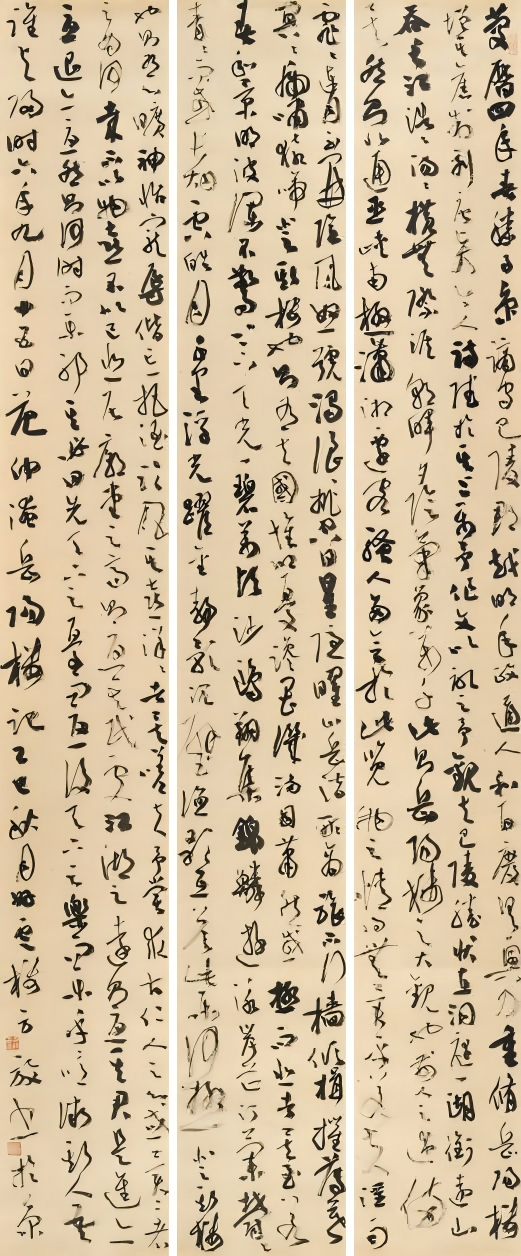 慶曆四年春滕子京謫守巴陵郡越明年政通人和百廢具興乃重脩岳陽樓
增其舊制刻唐賢今人詩賦於其上屬予作文以記之予觀夫巴陵勝狀在洞庭一湖銜遠山
吞長江浩浩湯湯橫無際涯朝暉夕陰氣象萬千此則岳陽樓之大觀也前人之述備
矣然則北通巫峽南極瀟湘遷客騷人多會於此覽物之情得無異乎若夫淫雨
霏霏連月不開陰風怒號濁浪排空日星隱曜山岳潛形商旅不行檣傾楫摧薄暮
冥冥虎嘯猿啼登斯樓也則有去國懷鄉憂讒畏譏滿目蕭然感極而悲者矣至若
春和景明波瀾不驚上下天光一碧萬頃沙鷗翔集錦鱗游泳岸芷汀蘭郁郁
青青而或長煙一空皓月千里浮光躍金靜影沉璧漁歌互答此樂何極登斯樓
也則有心曠神怡寵辱偕忘把酒臨風其喜洋洋者矣嗟夫予嘗求古仁人之心或異二者
之為何哉不以物喜不以己悲居廟堂之高則憂其民處江湖之遠則憂其君是進亦
憂退亦憂然則何時而樂耶其必曰先天下之憂而憂後天下之樂而樂乎噫微斯人吾
誰與歸時六年九月十五日范仲淹岳陽樓記乙巳秋月 樓 於京